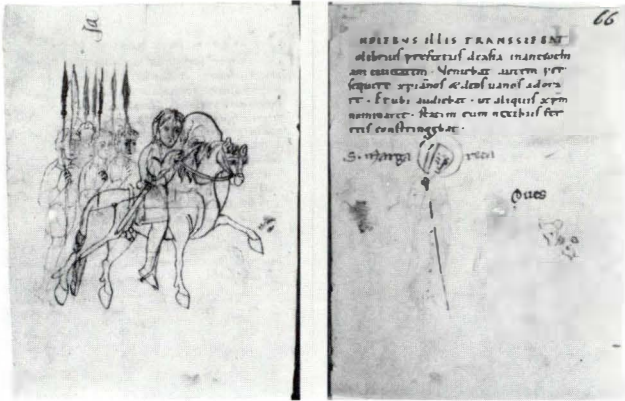 66
NDIEBUS ILLIS TRANSSIEBAT
olibrius prefectus deasia
am ciuitatem · Veniebat autem per
sequere xpianos & deos uanos adora
re · Et ubi audiebat · ut aliquis xpm
nominaret · statim eum nexibus fer
reis constringebat ·
S. marga reta
oues